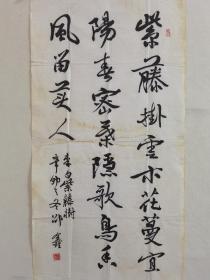 紫藤掛雲木花蔓宜
陽春密葉隱歌鳥香
風留美人
李白紫藤樹
辛卯之冬邵鑫